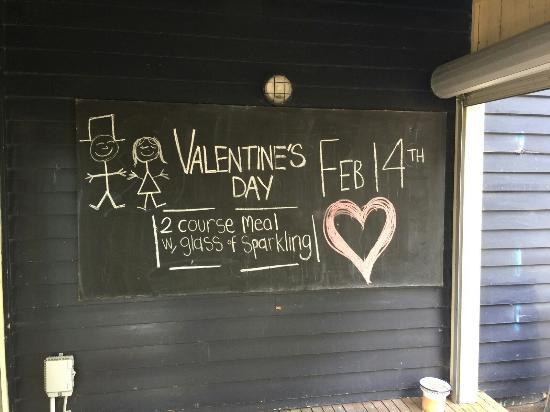 VALENTINE'S
DAY
FEB 14TH
2 course meal
w/ glass of sparkling